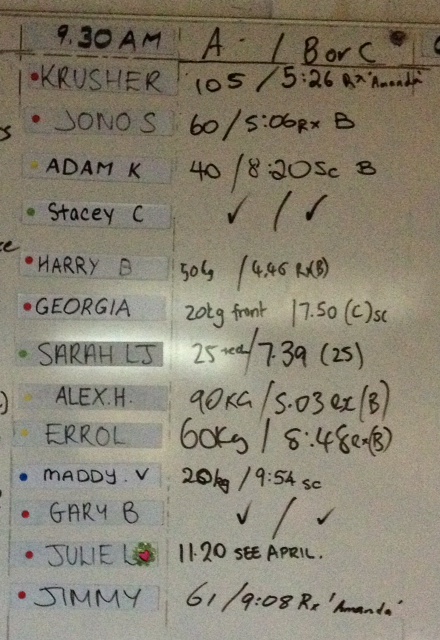 9.30AM A / B or C
KRUSHER 105 / 5:26 Rx 'Amanda'
JONO S 60 / 5:06 Rx B
ADAM K 40 / 8:20 Sc B
Stacey C ✓ / ✓
HARRY B 50kg / 4.46 Rx(B)
GEORGIA 20kg front / 7.50 (C) sc
SARAH LJ 25 red / 7.39 (25)
ALEX.H. 90KG / 5.03 Rx (B)
ERROL 60Kg / 8:48 Rx (B)
MADDY.V 20kg / 9:54 sc
GARY B ✓ / ✓
JULIE L 11.20 SEE APRIL.
JIMMY 61 / 9:08 Rx 'Amanda'